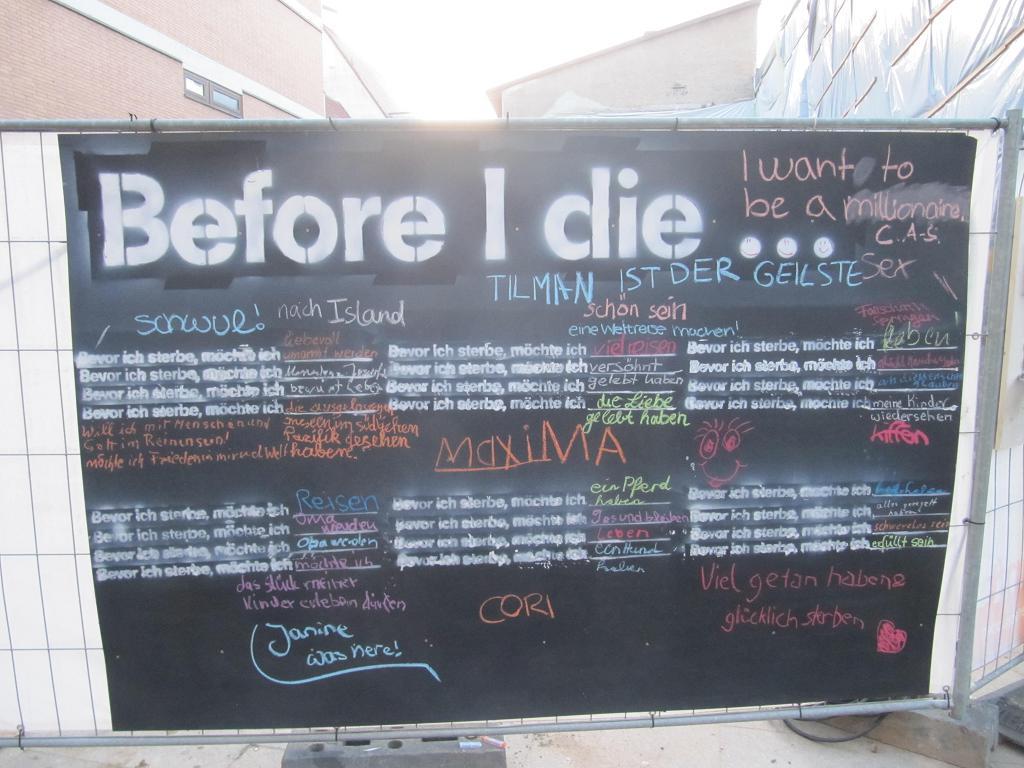 Before I die ...
I want to
be a millionaire
C.A.S.
Sex
TILMAN IST DER GEILSTE
schwul!
nach Island
schön sein
eine Weltreise machen!
liebevoll
Bevor ich sterbe, möchte ich umarmt werden
Bevor ich sterbe, möchte ich
Bevor ich sterbe, möchte ich bewusst leben
Bevor ich sterbe, möchte ich die
Inseln im südlichen
Pazifik gesehen
haben.
Will ich mit Menschen und
Gott im Reinen sun!
möchte ich Frieden in mir und Welt
Bevor ich sterbe, möchte ich viel reisen
Bevor ich sterbe, möchte ich versöhnt
Bevor ich sterbe, möchte ich gelebt haben
Bevor ich sterbe, möchte ich die Liebe
gelebt haben
Fallschirm
springen
Bevor ich sterbe, möchte ich leben
Bevor ich sterbe, möchte ich
Bevor ich sterbe, möchte ich
Bevor ich sterbe, möchte ich meine Kinder
wiedersehen
kiffen
MAXiMA
Bevor ich sterbe, möchte ich Reisen
Bevor ich sterbe, möchte ich Oma werden
Bevor ich sterbe, möchte ich Opa werden
Bevor ich sterbe, möchte ich möchte ich
das Glück meiner
Kinder erleben dürfen
ein Pferd
Bevor ich sterbe, möchte ich haben
Bevor ich sterbe, möchte ich Gesund bleiben
Bevor ich sterbe, möchte ich Leben
Bevor ich sterbe, möchte ich ein Hund
haben
Bevor ich sterbe, möchte ich
Bevor ich sterbe, möchte ich alles geregelt haben
Bevor ich sterbe, möchte ich schwerelos sein
Bevor ich sterbe, möchte ich erfüllt sein
CORI
Viel getan haben &
glücklich sterben
Janine
was here!